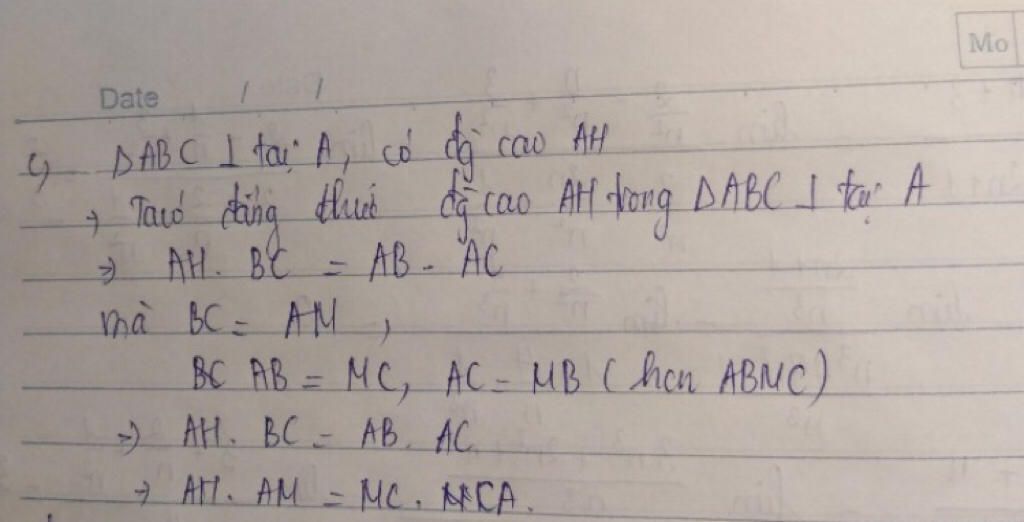 Mo
Date / /
c) ΔABC ⊥ tại A, có đg cao AH
→ Ta có đẳng thức đg cao AH trong ΔABC ⊥ tại A
⇒ AH. BC = AB . AC
mà BC = AM ,
BC AB = MC, AC = MB ( hcn ABMC)
⇒ AH. BC = AB. AC
→ AH. AM = MC. CA.